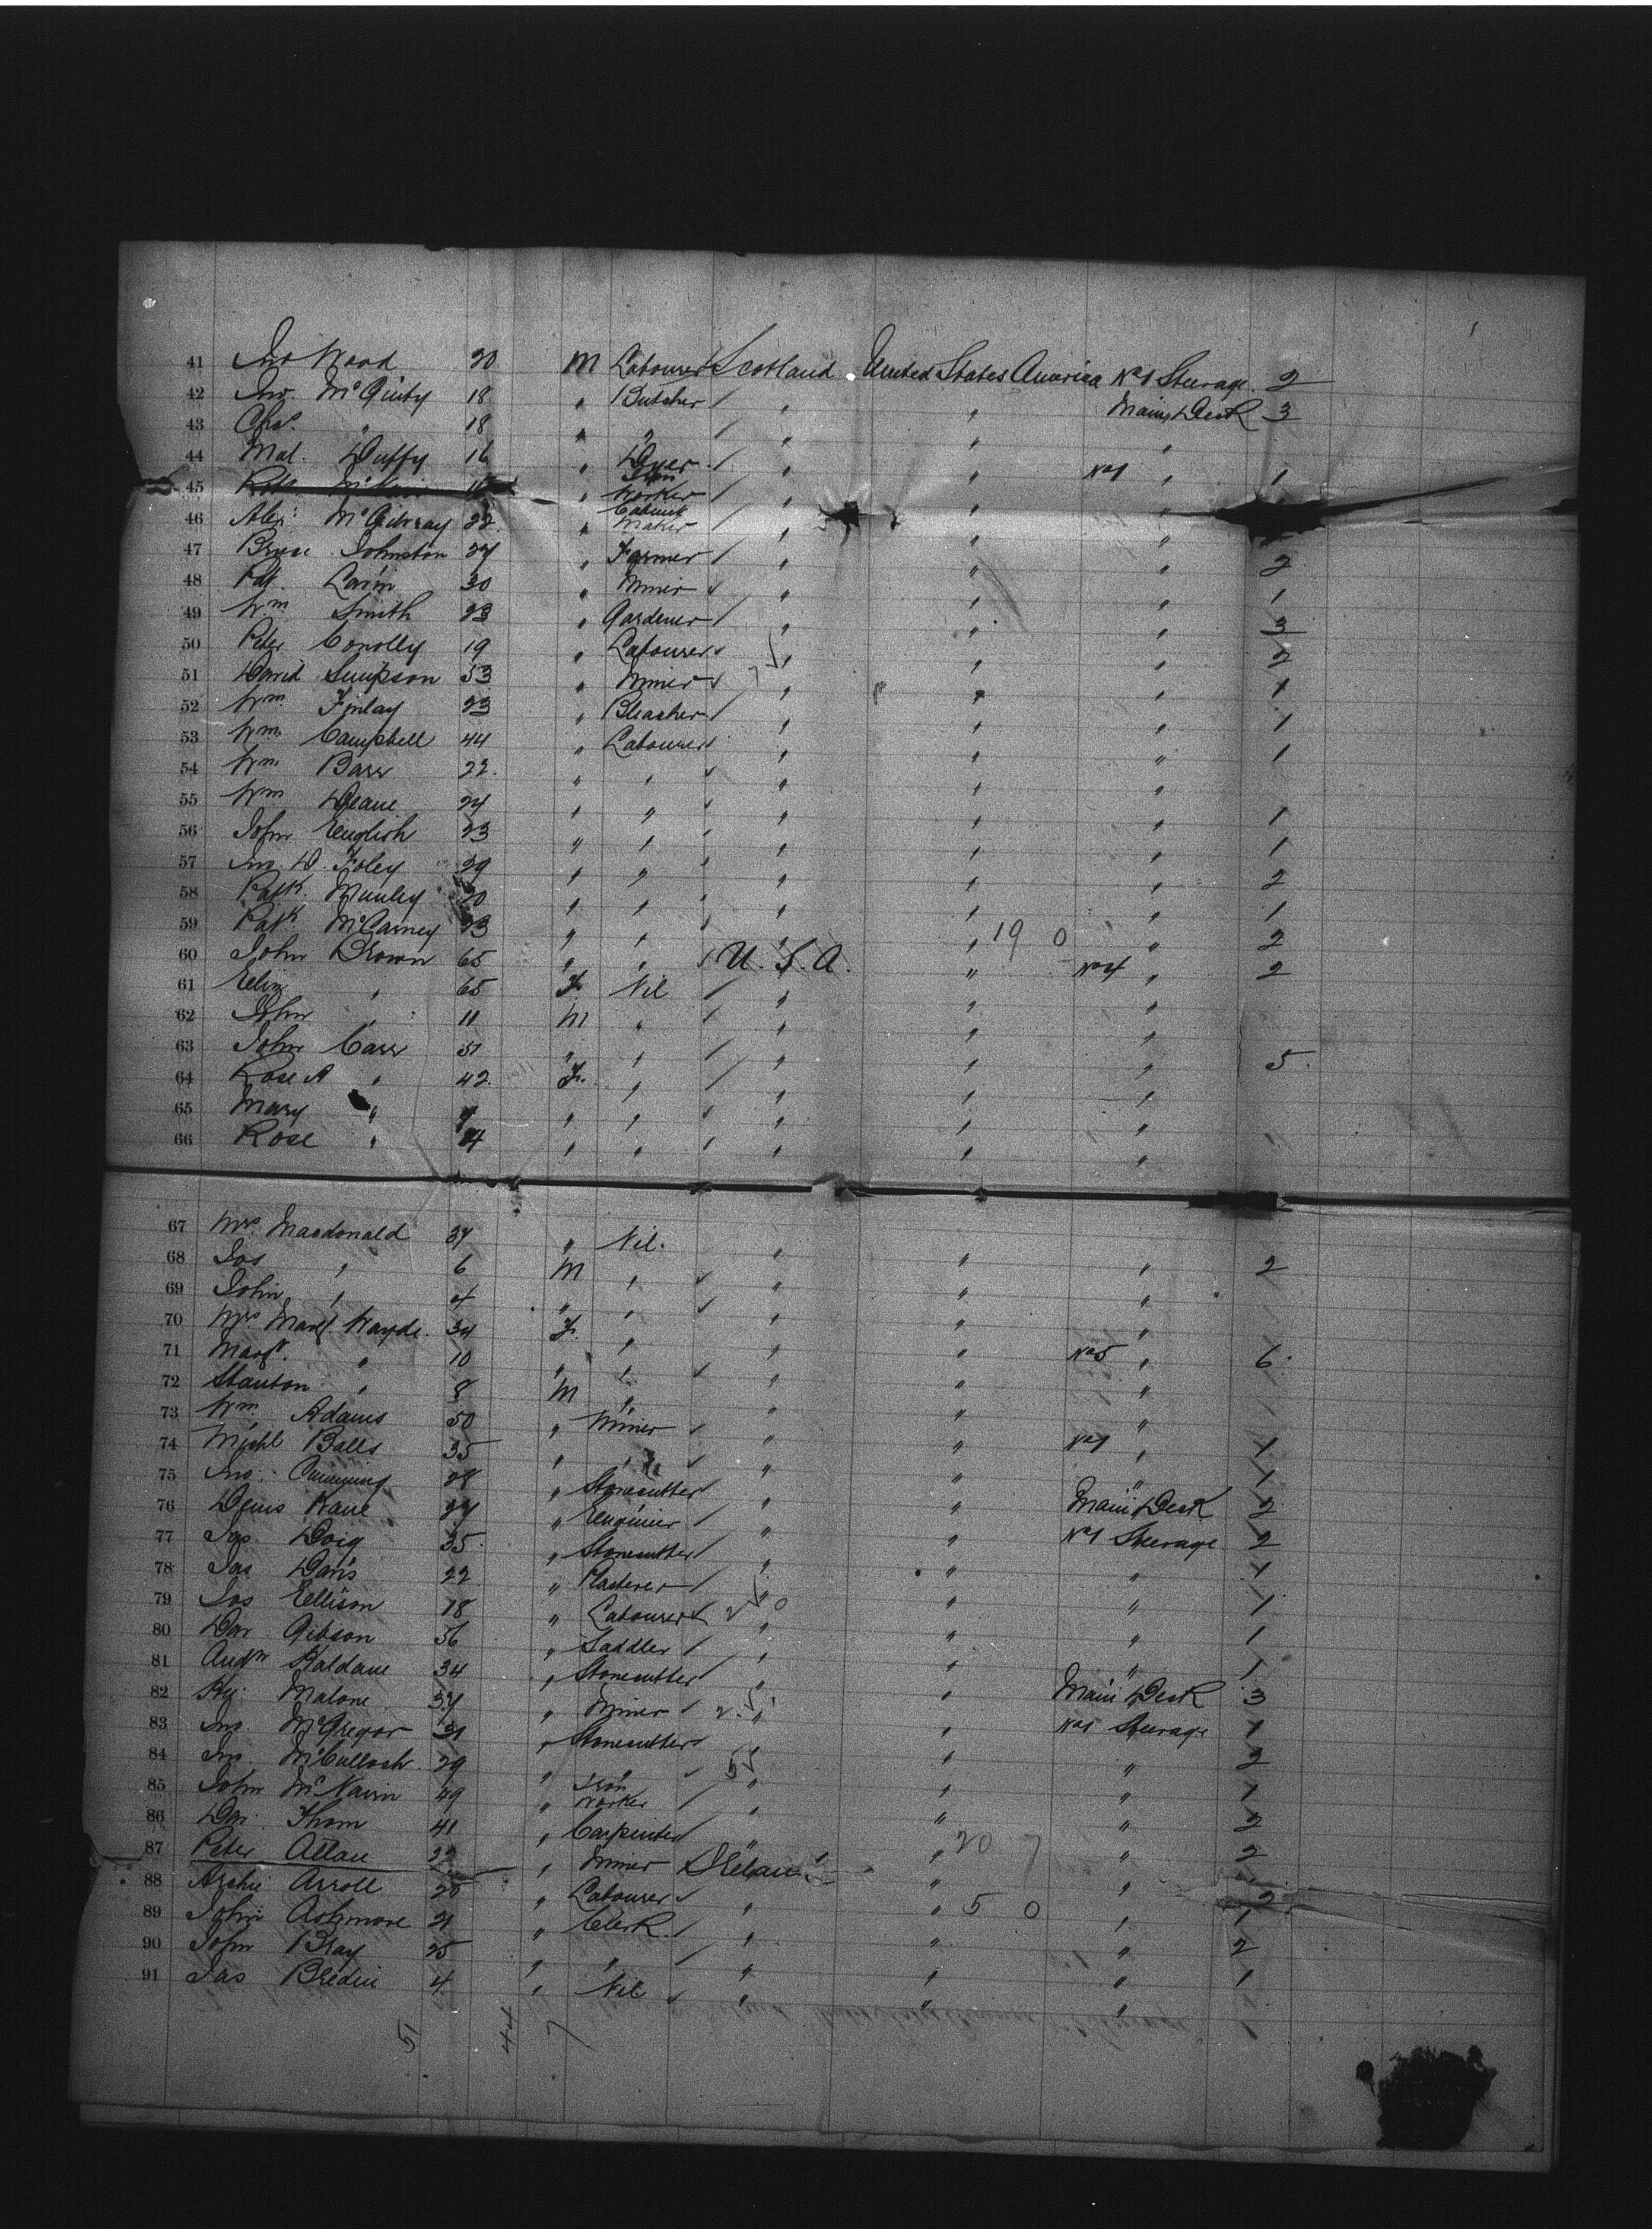 41 Jno Wood 20 M Labourer Scotland United States America No 1 Steerage 2
42 Jno. McGinty 18 " Butcher " " Main Deck 3
43 Chs. " 18 " " " " "
44 Mal. Duffy 16 " Dyer " " No 1 " 1
45 Robt. " Iron Worker " " "
46 Alex. McGilvray 22 " Cabinet Maker " " "
47 Bryce Johnston 27 " Farmer " " " 2
48 Pat. 30 " Miner " " " 1
49 Wm. Smith 23 " Gardener " " " 3
50 Peter Conolly 19 " Labourer " " " 2
51 David Simpson 53 " Miner " " " 1
52 Wm. Finlay 23 " Bleacher " " " 1
53 Wm. Campbell 44 " Labourer " " " 1
54 Wm Barr 22 " " " " "
55 Wm Deane 24 " " " " " 1
56 John English 23 " " " " " 1
57 Jno. D. Foley 29 " " " " " 2
58 Patk. Munley 20 " " " " " 1
59 Patk. McCarney 23 " " " " 19 0 " 2
60 John Brown 65 " " U.S.A. " No 4 " 2
61 Eliz " 65 F. Nil " " "
62 John " 11 M " " " "
63 John Carr 51 " " " " " 5
64 Rose A " 42 F. " " " "
65 Mary " " " " " "
66 Rose " " " " " "
67 Mrs. Macdonald 37 " Nil. " " " 2
68 Jos " 6 M " " " "
69 John " 4 " " " " "
70 Mrs Margt. 34 F. " " " No 5 " 6
71 Margt. " 10 " " " " "
72 Stanton " 8 M " " " "
73 Wm. Adams 50 " Miner " " No 1 " 1
74 Michl Balls 35 " " " " " 1
75 Jno. Cumming 28 " Stonecutter " " Main Deck 2
76 Denis Kane 27 " Engineer " " No 1 Steerage 2
77 Jas. Doig 35 " Stonecutter " " " 1
78 Jas Davis 22 " Plasterer " " " 1
79 Jos Ellison 18 " Labourer " " " 1
80 Dav. Gibson 56 " Saddler " " " 1
81 Andw Haldane 34 " Stonecutter " " Main Deck 3
82 Hy. Malone 37 " Miner " " No 1 Steerage 1
83 Jno. McGregor 31 " Stonecutter " " " 2
84 Jno. McCulloch 29 " " " " " 1
85 John McNairn 49 " Iron Worker " " " 2
86 Dav. Thom 41 " Carpenter " " 20 7 " 2
87 Peter Allan " Miner Ireland " " 2
88 Archie Arroll 20 " Labourer " " 5 0 " 1
89 John Ashmore 21 " Clerk " " " 2
90 John Bray 25 " " " " " 1
91 Jas Bredin 4 " Nil " " "
5 44 7